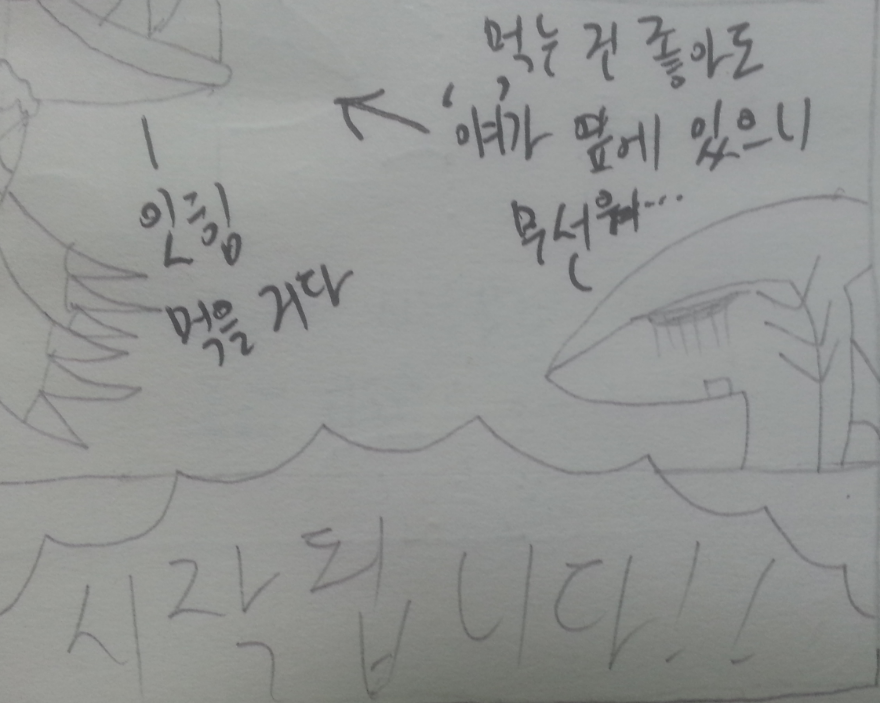 먹는 건 좋아도
'여'가 옆에 있으니
무서워...
인힘
먹을 거다
시작됩니다!!